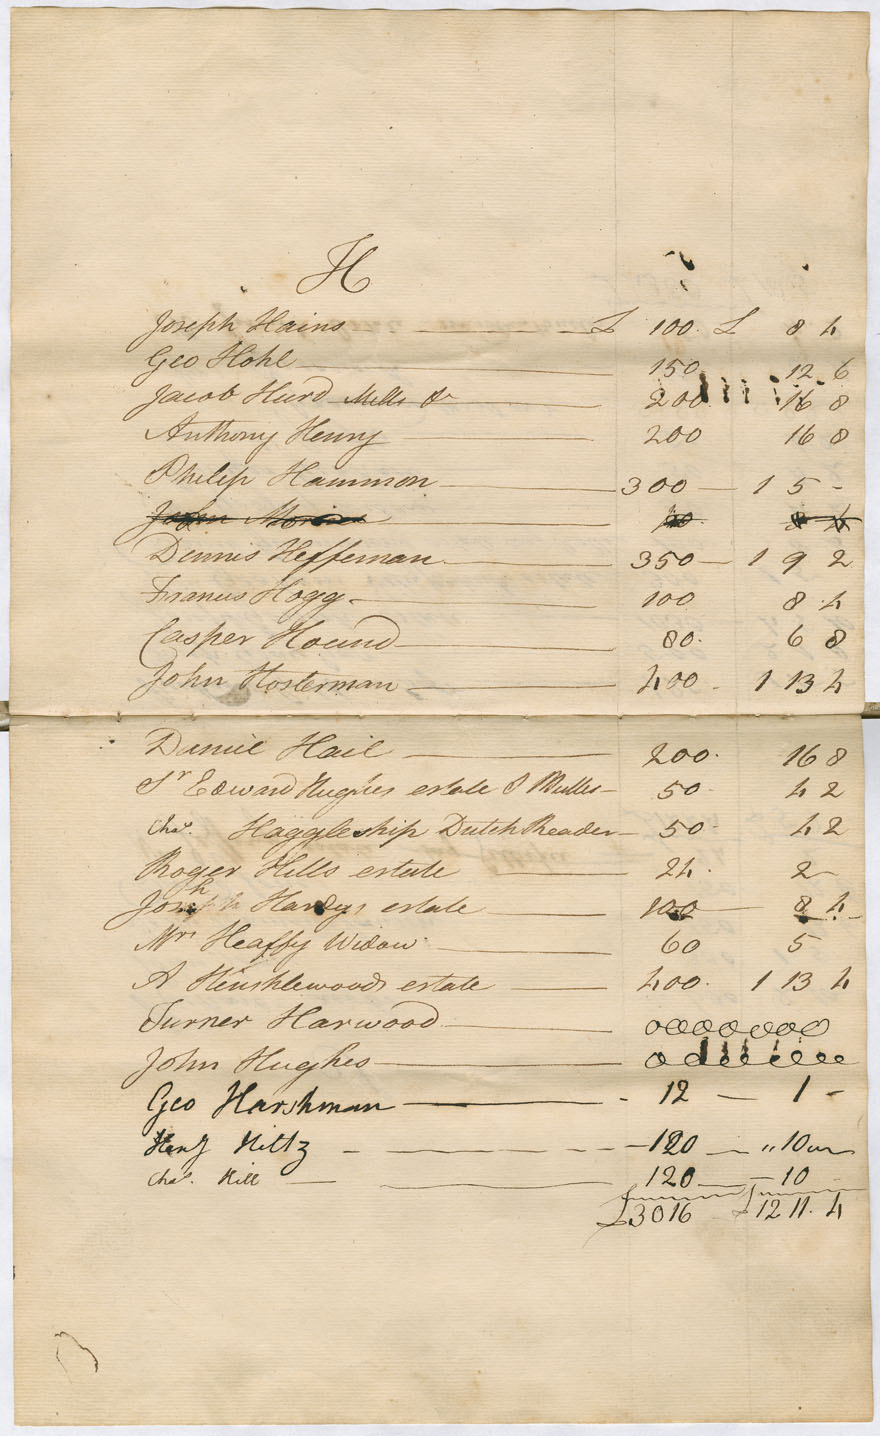 H
Joseph Hains £ 100 £ 8 4
Geo Hohl 150 12 6
Jacob Hurd Mills & 200 16 8
Anthony Henry 200 16 8
Philip Hammon 300 1 5 -
John
Dennis Heffernan 350 1 9 2
Francis Hogg 100 8 4
Casper Hound 80 6 8
John Hosterman 400 1 13 4
Daniel Hail 200 16 8
Sr Edward Hughes estate 50 4 2
Chas. Haggleship Dutch Reader 50 4 2
Roger Hills estate 24 2 -
Joseph Hardys estate 100 8 4
Mrs Heaffy Widow 60 5
A Hinshlewoods estate 400 1 13 4
Turner Harwood
John Hughes
Geo Harshman 12 1 -
Hiltz 120 " 10
Chas. Hill 120 10
£3016 £12 11. 4